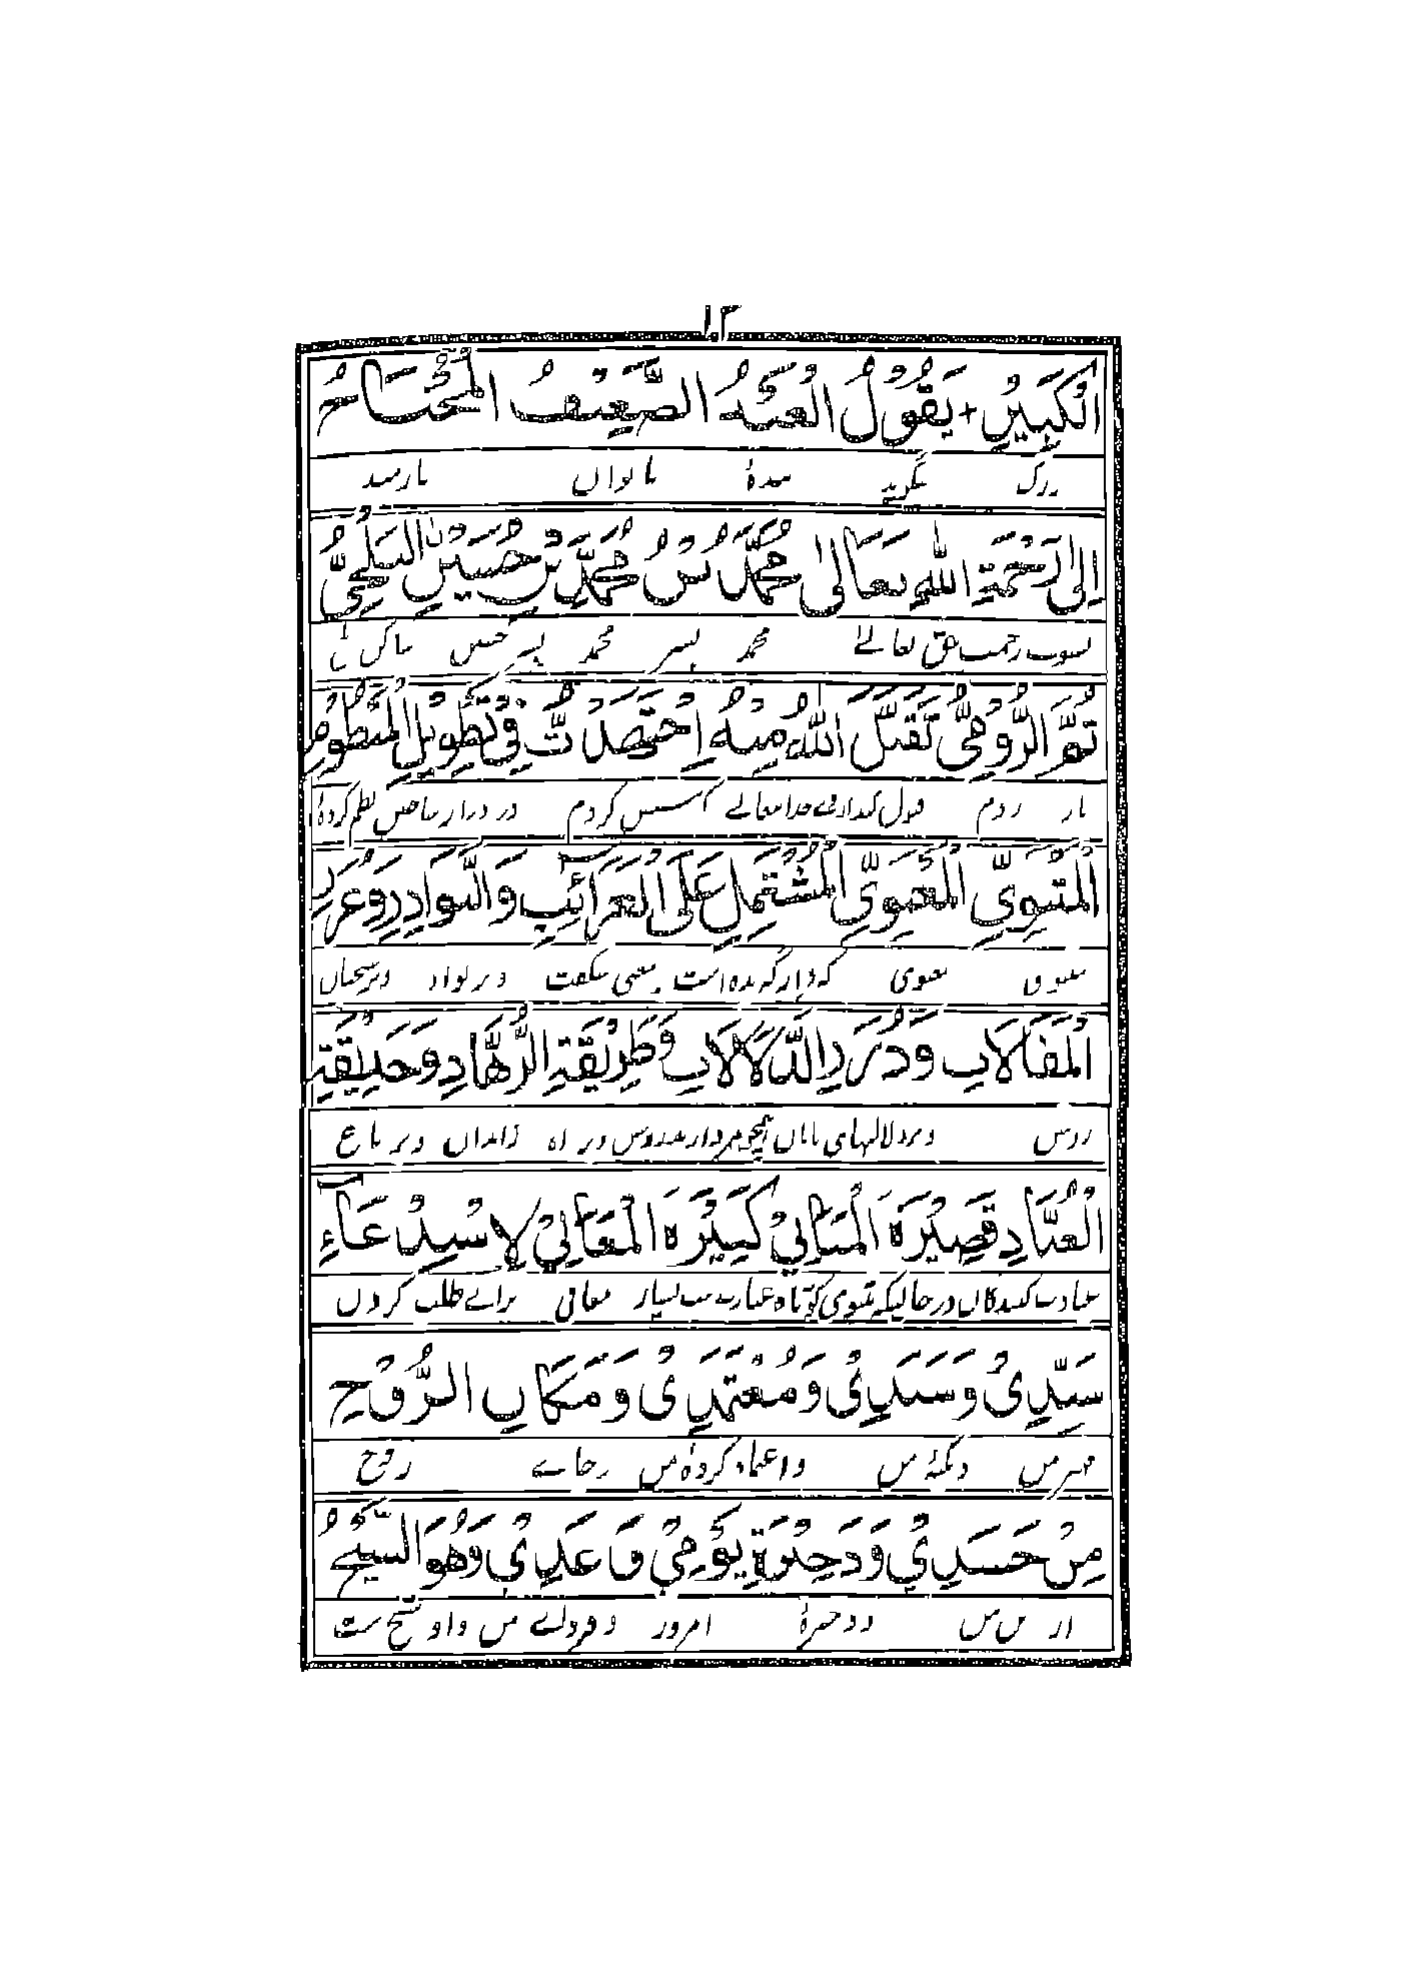 ۱۳
الْكَبِيْرِ + يَقُوْلُ الْعَبْدُ الضَّعِيْفُ الْمُحْتَاجُ
بزرگ میگوید بندهٔ ناتواں
اِلىٰ رَحْمَةِ اللّٰهِ تَعَالىٰ مُحَمَّدُ بْنُ مُحَمَّدِ بْنِ حُسَيْنِ الْبَلْخِيُّ
بسوے رحمت حق تعالے محمد پسر محمد پسر حسین ساکن بلخ
ثُمَّ الرُّوْمِيُّ تَقَبَّلَ اللّٰهُ مِنْهُ اِجْتَهَدْتُ فِيْ تَطْوِيْلِ الْمَنْظُوْمِ
باز روم قبول کناد ازوے خداتعالے کوشش کردم در دراز ساختن نظم کردهٔ
الْمَثْنَوِيِّ الْمَعْنَوِيِّ الْمُشْتَمِلِ عَلَى الْغَرَائِبِ وَالنَّوَادِرِ وَغُرَرِ
مثنوی معنوی شگفت و بر نوادر و بر سخنان
الْمَقَالَاتِ وَدُرَرِ الدَّلَالَاتِ وَطَرِيْقَةِ الزُّهَّادِ وَحَدِيْقَةِ
روشن و بر دلالتهای و بر راه زاهدان و بر باغ
الْعُبَّادِ قَصِيْرَةَ الْمَبَانِيْ كَثِيْرَةَ الْمَعَانِيْ لِاسْتِدْعَاءِ
عبادت کنندگان در حالیکه مثنوی کوتاه عبارت ست بسیار معانی براے طلب کردن
سَيِّدِيْ وَسَنَدِيْ وَمُعْتَمَدِيْ وَمَكَانِ الرُّوْحِ
مهتر من و تکیهٔ من و اعتماد کردهٔ من و بجاے روح
مِنْ جَسَدِيْ وَذَخِيْرَةِ يَوْمِيْ وَغَدِيْ وَهُوَ الشَّيْخُ
از تن من و ذخیرهٔ امروز و فرداے من و او شیخ ست